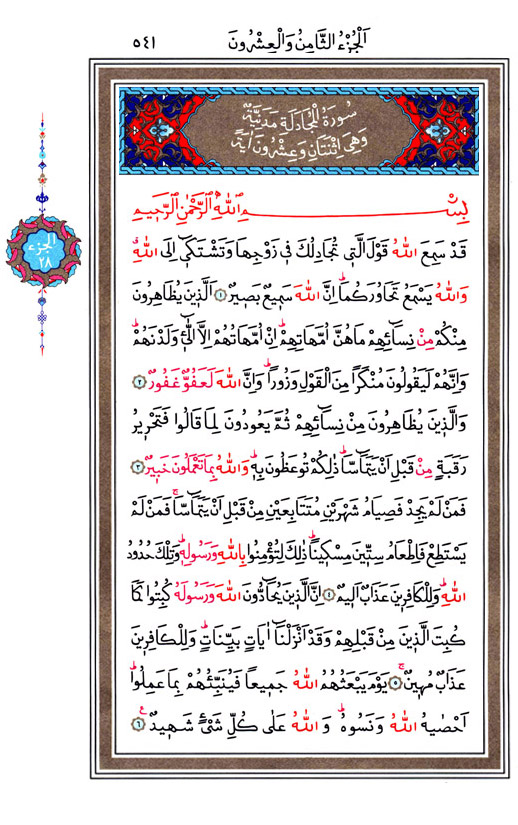 اَلْجُزْءُ الثَّامِنُ وَالْعِشْرُونَ
٥٤١
سُورَةُ الْمُجَادَلَةِ مَدَنِيَّةٌ
وَهِيَ اثْنَتَانِ وَعِشْرُونَ اٰيَةً
اَلْجُزْءُ
٢٨
بِسْمِ اللهِ الرَّحْمٰنِ الرَّحِيمِ
قَدْ سَمِعَ اللهُ قَوْلَ الَّتِي تُجَادِلُكَ فِي زَوْجِهَا وَتَشْتَكِي اِلَى اللهِۗ
وَاللهُ يَسْمَعُ تَحَاوُرَكُمَاۜ اِنَّ اللهَ سَمِيعٌ بَصِيرٌ ﴿١﴾ اَلَّذِينَ يُظَاهِرُونَ
مِنْكُمْ مِنْ نِسَائِهِمْ مَا هُنَّ اُمَّهَاتِهِمْۜ اِنْ اُمَّهَاتُهُمْ اِلَّا الّٰئِ وَلَدْنَهُمْۜ
وَاِنَّهُمْ لَيَقُولُونَ مُنْكَرًا مِنَ الْقَوْلِ وَزُورًاۜ وَاِنَّ اللهَ لَعَفُوٌّ غَفُورٌ ﴿٢﴾
وَالَّذِينَ يُظَاهِرُونَ مِنْ نِسَائِهِمْ ثُمَّ يَعُودُونَ لِمَا قَالُوا فَتَحْرِيرُ
رَقَبَةٍ مِنْ قَبْلِ اَنْ يَتَمَاسَّاۜ ذٰلِكُمْ تُوعَظُونَ بِهِۜ وَاللهُ بِمَا تَعْمَلُونَ خَبِيرٌ ﴿٣﴾
فَمَنْ لَمْ يَجِدْ فَصِيَامُ شَهْرَيْنِ مُتَتَابِعَيْنِ مِنْ قَبْلِ اَنْ يَتَمَاسَّاۚ فَمَنْ لَمْ
يَسْتَطِعْ فَاِطْعَامُ سِتِّينَ مِسْكِينًاۜ ذٰلِكَ لِتُؤْمِنُوا بِاللهِ وَرَسُولِهِۜ وَتِلْكَ حُدُودُ
اللهِۜ وَلِلْكَافِرِينَ عَذَابٌ اَلِيمٌ ﴿٤﴾ اِنَّ الَّذِينَ يُحَادُّونَ اللهَ وَرَسُولَهُ كُبِتُوا كَمَا
كُبِتَ الَّذِينَ مِنْ قَبْلِهِمْ وَقَدْ اَنْزَلْنَا اٰيَاتٍ بَيِّنَاتٍۜ وَلِلْكَافِرِينَ
عَذَابٌ مُهِينٌۚ ﴿٥﴾ يَوْمَ يَبْعَثُهُمُ اللهُ جَمِيعًا فَيُنَبِّئُهُمْ بِمَا عَمِلُواۜ
اَحْصٰيهُ اللهُ وَنَسُوهُۜ وَاللهُ عَلٰى كُلِّ شَيْءٍ شَهِيدٌ۟ ﴿٦﴾